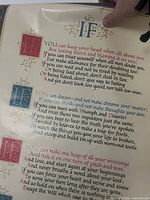 IF
IF
YOU can keep your head when all about you
Are losing theirs and blaming it on you;
If you can trust yourself when all men doubt you,
But make allowance for their doubting too;
If you can wait and not be tired by waiting,
Or being lied about, don't deal in lies,
Or being hated, don't give way to hating,
And yet don't look too good, nor talk too wise:
IF
YOU can dream - and not make dreams your master;
If you can think - and not make thoughts your aim;
If you can meet with Triumph and Disaster
And treat those two impostors just the same;
If you can bear to hear the truth you've spoken
Twisted by knaves to make a trap for fools,
Or watch the things you gave your life to, broken,
And stoop and build 'em up with worn-out tools:
IF
YOU can make one heap of all your winnings
And risk it on one turn of pitch-and-toss,
And lose, and start again at your beginnings
And never breathe a word about your loss;
If you can force your heart and nerve and sinew
To serve your turn long after they are gone,
And so hold on when there is nothing in you
Except the Will which says to them: